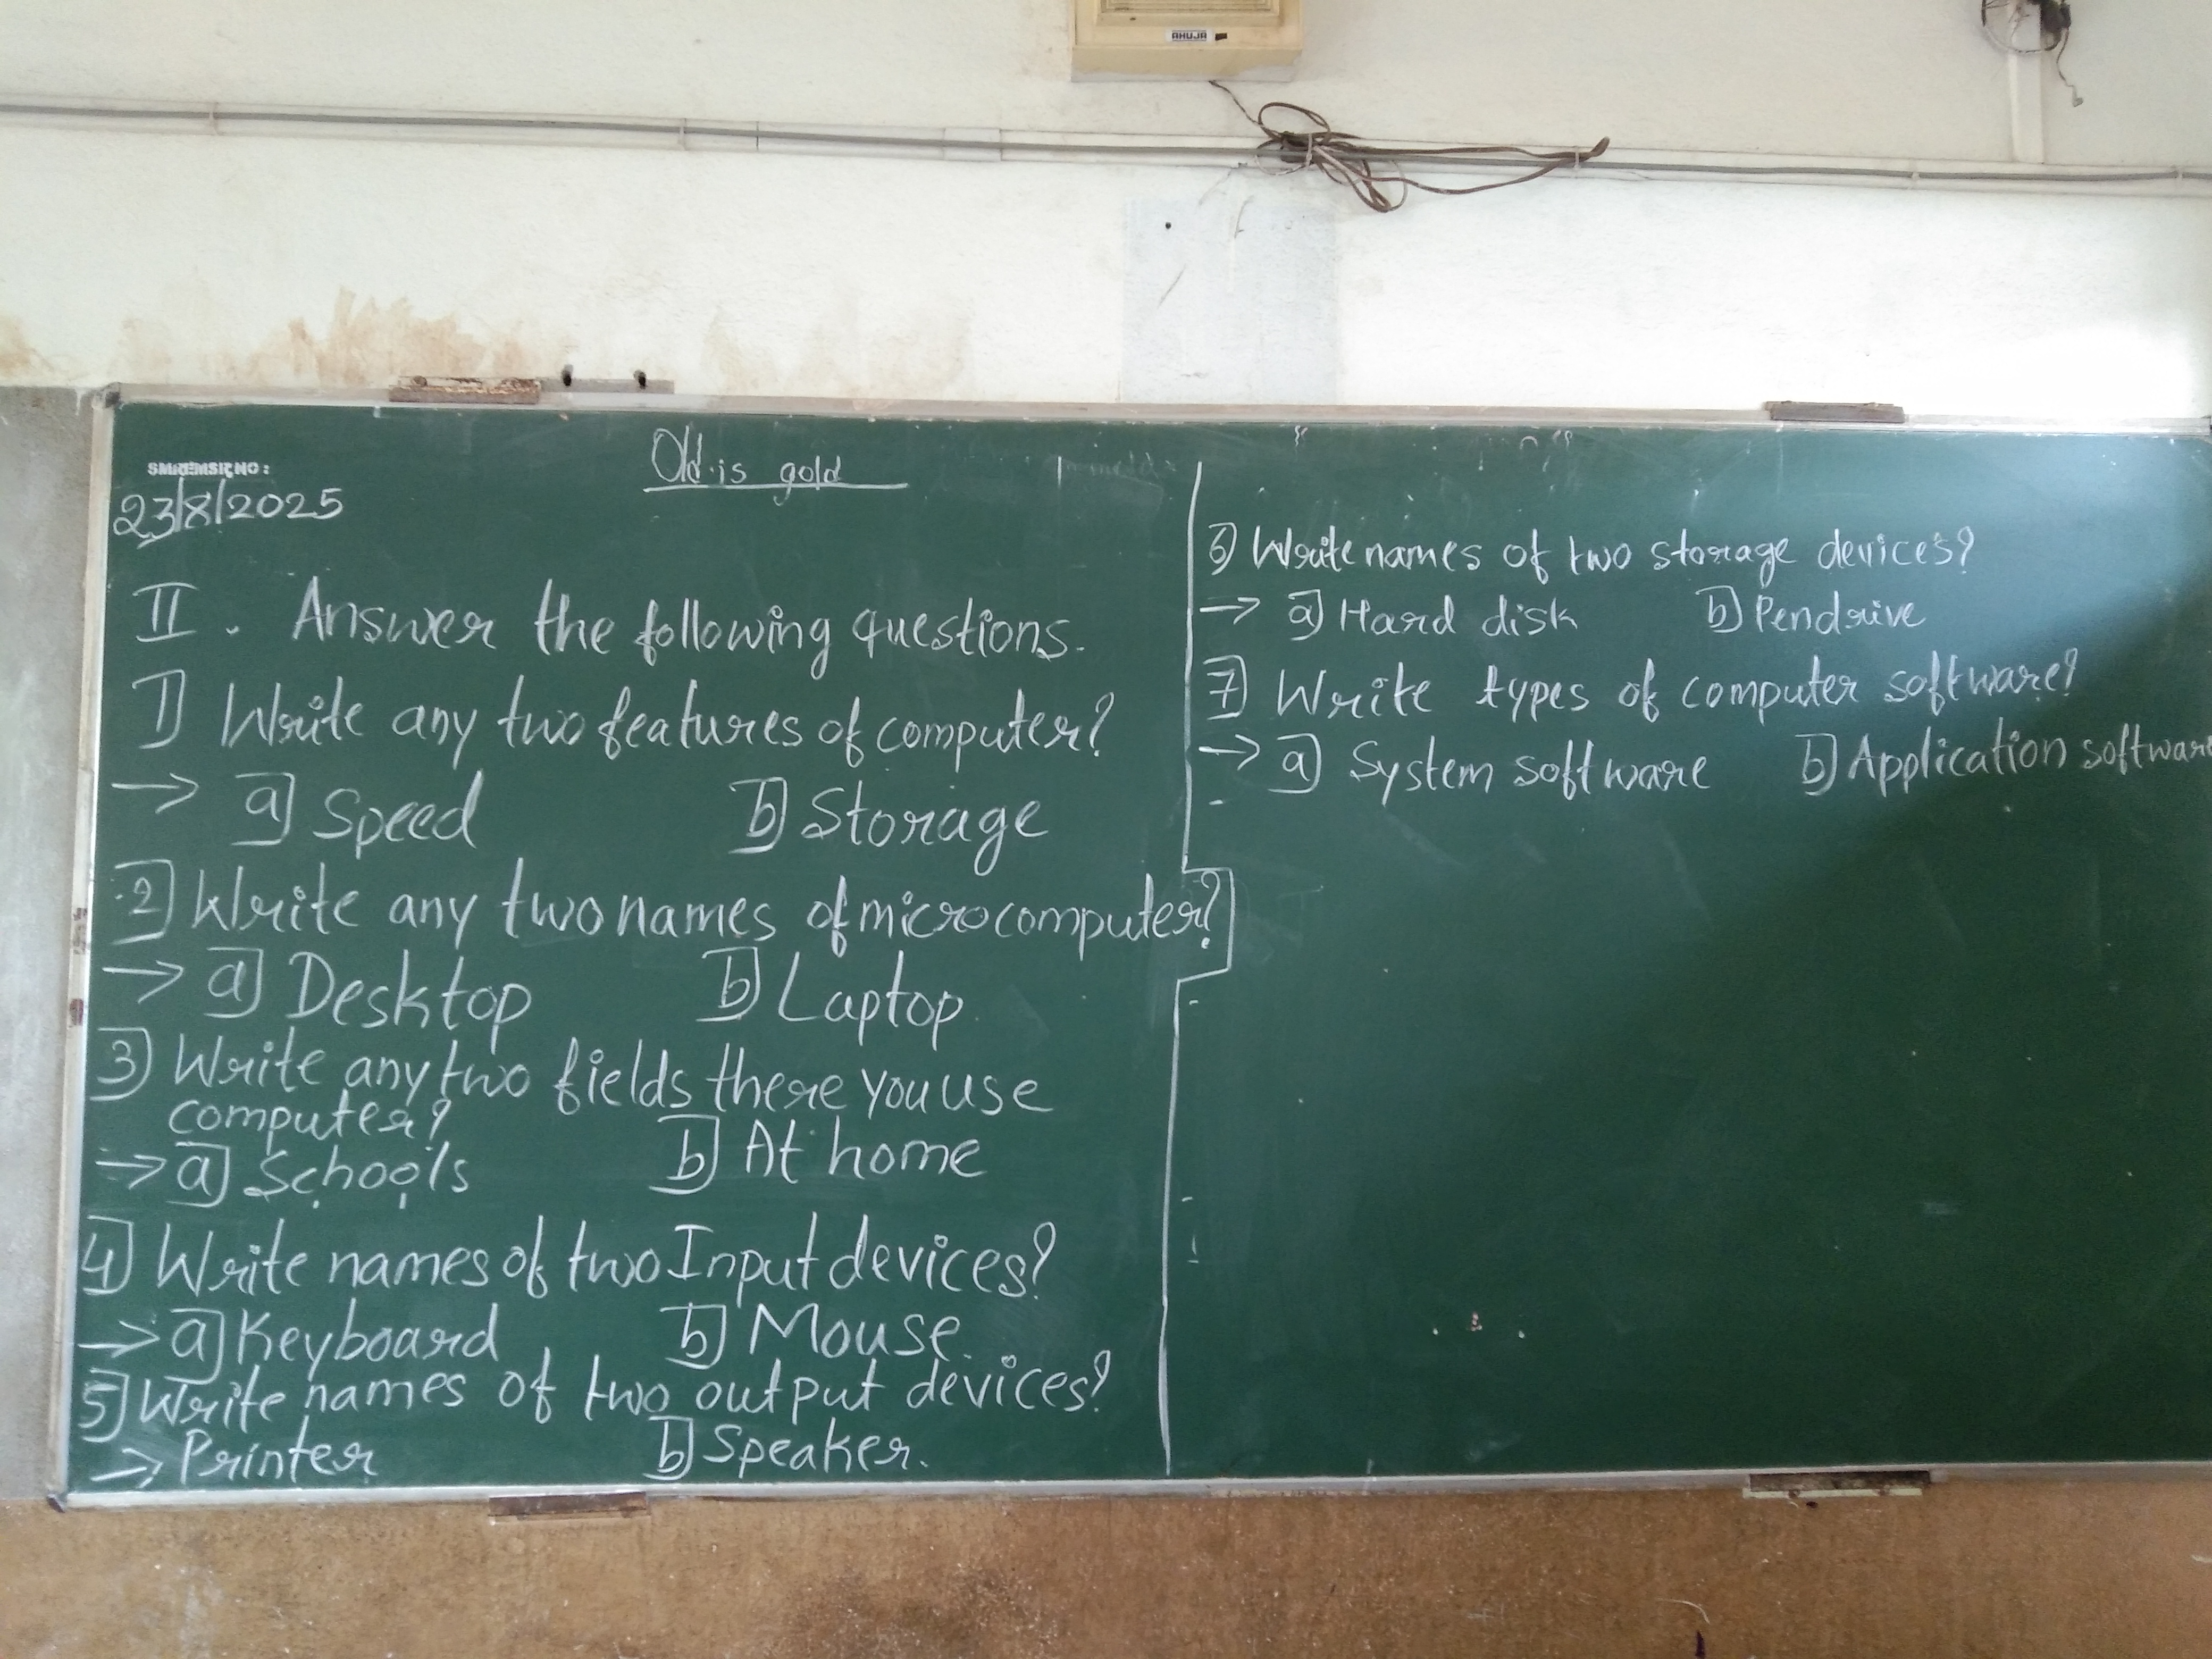 AHUJA
Old is gold
23/8/2025
II. Answer the following questions.
1] Write any two features of computer?
→ a] Speed b] Storage
2] Write any two names of microcomputer?
→ a] Desktop b] Laptop
3] Write any two fields there you use
computer?
→ a] Schools b] At home
4] Write names of two Input devices?
→ a] Keyboard b] Mouse.
5] Write names of two output devices?
→ Printer b] Speaker.
6] Write names of two storage devices?
→ a] Hard disk b] Pendrive
7] Write types of computer software?
→ a] System software b] Application software